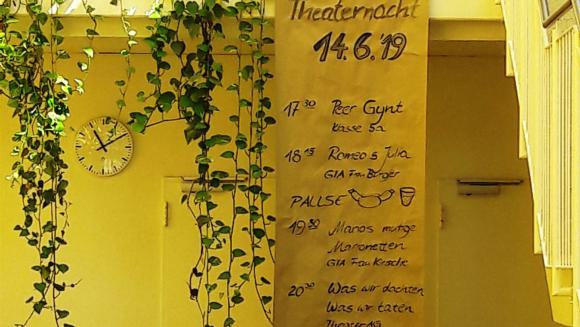 Theaternacht
14.6.'19
17 30 Peer Gynt
Klasse 5a
18 15 Romeo & Julia
GTA Frau Berger
PAUSE
19 30 Manos mutige
Marionetten
GTA Frau Kirsche
20 30 Was wir dachten
Was wir taten